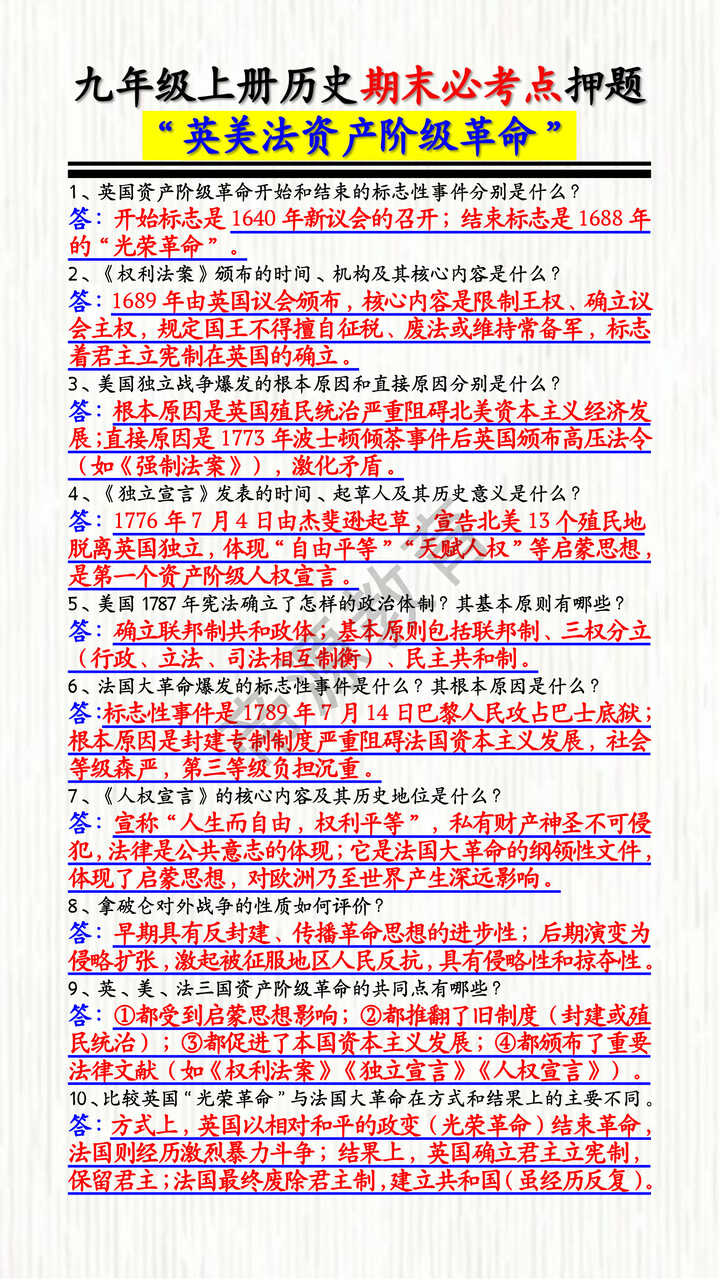 九年级上册历史期末必考点押题
“英美法资产阶级革命”
1、英国资产阶级革命开始和结束的标志性事件分别是什么？
答：开始标志是1640年新议会的召开；结束标志是1688年
的“光荣革命”。
2、《权利法案》颁布的时间、机构及其核心内容是什么？
答：1689年由英国议会颁布，核心内容是限制王权、确立议
会主权，规定国王不得擅自征税、废法或维持常备军，标志
着君主立宪制在英国的确立。
3、美国独立战争爆发的根本原因和直接原因分别是什么？
答：根本原因是英国殖民统治严重阻碍北美资本主义经济发
展；直接原因是1773年波士顿倾茶事件后英国颁布高压法令
（如《强制法案》），激化矛盾。
4、《独立宣言》发表的时间、起草人及其历史意义是什么？
答：1776年7月4日由杰斐逊起草，宣告北美13个殖民地
脱离英国独立，体现“自由平等”“天赋人权”等启蒙思想，
是第一个资产阶级人权宣言。
5、美国1787年宪法确立了怎样的政治体制？其基本原则有哪些？
答：确立联邦制共和政体，基本原则包括联邦制、三权分立
（行政、立法、司法相互制衡）、民主共和制。
6、法国大革命爆发的标志性事件是什么？其根本原因是什么？
答：标志性事件是1789年7月14日巴黎人民攻占巴士底狱；
根本原因是封建专制制度严重阻碍法国资本主义发展，社会
等级森严，第三等级负担沉重。
7、《人权宣言》的核心内容及其历史地位是什么？
答：宣称“人生而自由，权利平等”，私有财产神圣不可侵
犯，法律是公共意志的体现；它是法国大革命的纲领性文件，
体现了启蒙思想，对欧洲乃至世界产生深远影响。
8、拿破仑对外战争的性质如何评价？
答：早期具有反封建、传播革命思想的进步性；后期演变为
侵略扩张，激起被征服地区人民反抗，具有侵略性和掠夺性。
9、英、美、法三国资产阶级革命的共同点有哪些？
答：①都受到启蒙思想影响；②都推翻了旧制度（封建或殖
民统治）；③都促进了本国资本主义发展；④都颁布了重要
法律文献（如《权利法案》《独立宣言》《人权宣言》）。
10、比较英国“光荣革命”与法国大革命在方式和结果上的主要不同。
答：方式上，英国以相对和平的政变（光荣革命）结束革命，
法国则经历激烈暴力斗争；结果上，英国确立君主立宪制，
保留君主；法国最终废除君主制，建立共和国（虽经历反复）。